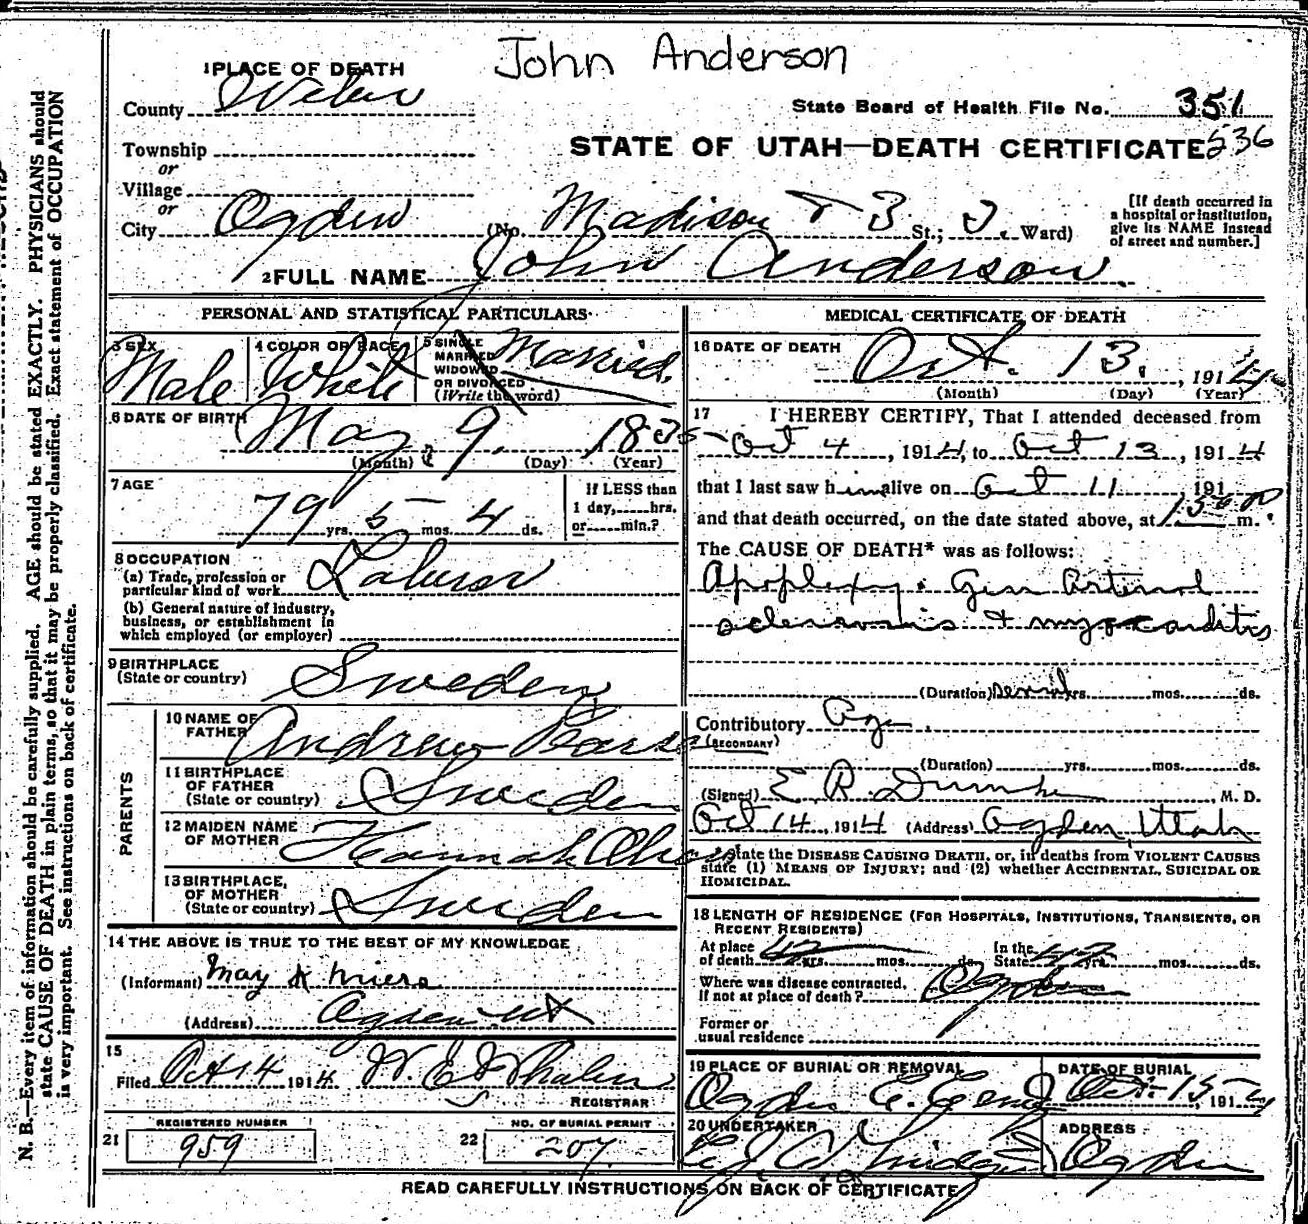 John Anderson
1 PLACE OF DEATH
County Weber
State Board of Health File No. 351
STATE OF UTAH—DEATH CERTIFICATE 536
Township
or
Village
or
City Ogden (No. Madison & 3 St.; 3. Ward)
[If death occurred in
a hospital or institution,
give its NAME instead
of street and number.]
2 FULL NAME John Anderson
PERSONAL AND STATISTICAL PARTICULARS
3 SEX Male
4 COLOR OR RACE White
5 SINGLE
MARRIED
WIDOWED
OR DIVORCED
(Write the word)
Married.
6 DATE OF BIRTH May 9. 1835
(Month) (Day) (Year)
7 AGE
79 yrs. 5 mos. 4 ds.
If LESS than
1 day, hrs.
or min.?
8 OCCUPATION
(a) Trade, profession or
particular kind of work Laborer
(b) General nature of industry,
business, or establishment in
which employed (or employer)
9 BIRTHPLACE
(State or country) Sweden
PARENTS
10 NAME OF
FATHER Andrew
11 BIRTHPLACE
OF FATHER
(State or country) Sweden
12 MAIDEN NAME
OF MOTHER Hannah
13 BIRTHPLACE,
OF MOTHER
(State or country) Sweden
14 THE ABOVE IS TRUE TO THE BEST OF MY KNOWLEDGE
(Informant) May
(Address) Ogden Ut
15
Filed Oct 14 1914 W. E.
REGISTRAR
REGISTERED NUMBER
21 959
NO. OF BURIAL PERMIT
22 207
MEDICAL CERTIFICATE OF DEATH
16 DATE OF DEATH
Oct. 13. , 1914
(Month) (Day) (Year)
17 I HEREBY CERTIFY, That I attended deceased from
Oct 4 , 1914, to Oct 13 , 1914
that I last saw him alive on Oct 11 191
and that death occurred, on the date stated above, at m.
The CAUSE OF DEATH* was as follows:
Apoplexy. Gen Arterial
sclerosis & myocarditis
(Duration) yrs. mos. ds.
Contributory Age.
(SECONDARY)
(Duration) yrs. mos. ds.
(Signed) E R , M. D.
Oct 14, 1914 (Address) Ogden, Utah
State the DISEASE CAUSING DEATH, or, in deaths from VIOLENT CAUSES
state (1) MEANS OF INJURY; and (2) whether ACCIDENTAL, SUICIDAL OR
HOMICIDAL.
18 LENGTH OF RESIDENCE (FOR HOSPITALS, INSTITUTIONS, TRANSIENTS, OR
RECENT RESIDENTS)
At place
of death yrs. mos. ds.
In the
State yrs. mos. ds.
Where was disease contracted,
If not at place of death? Ogden
Former or
usual residence
19 PLACE OF BURIAL OR REMOVAL
Ogden
DATE OF BURIAL
Oct. 15 , 1914
20 UNDERTAKER
ADDRESS
Ogden
READ CAREFULLY INSTRUCTIONS ON BACK OF CERTIFICATE
N. B.—Every item of information should be carefully supplied. AGE should be stated EXACTLY. PHYSICIANS should
state CAUSE OF DEATH in plain terms, so that it may be properly classified. Exact statement of OCCUPATION
is very important. See instructions on back of certificate.